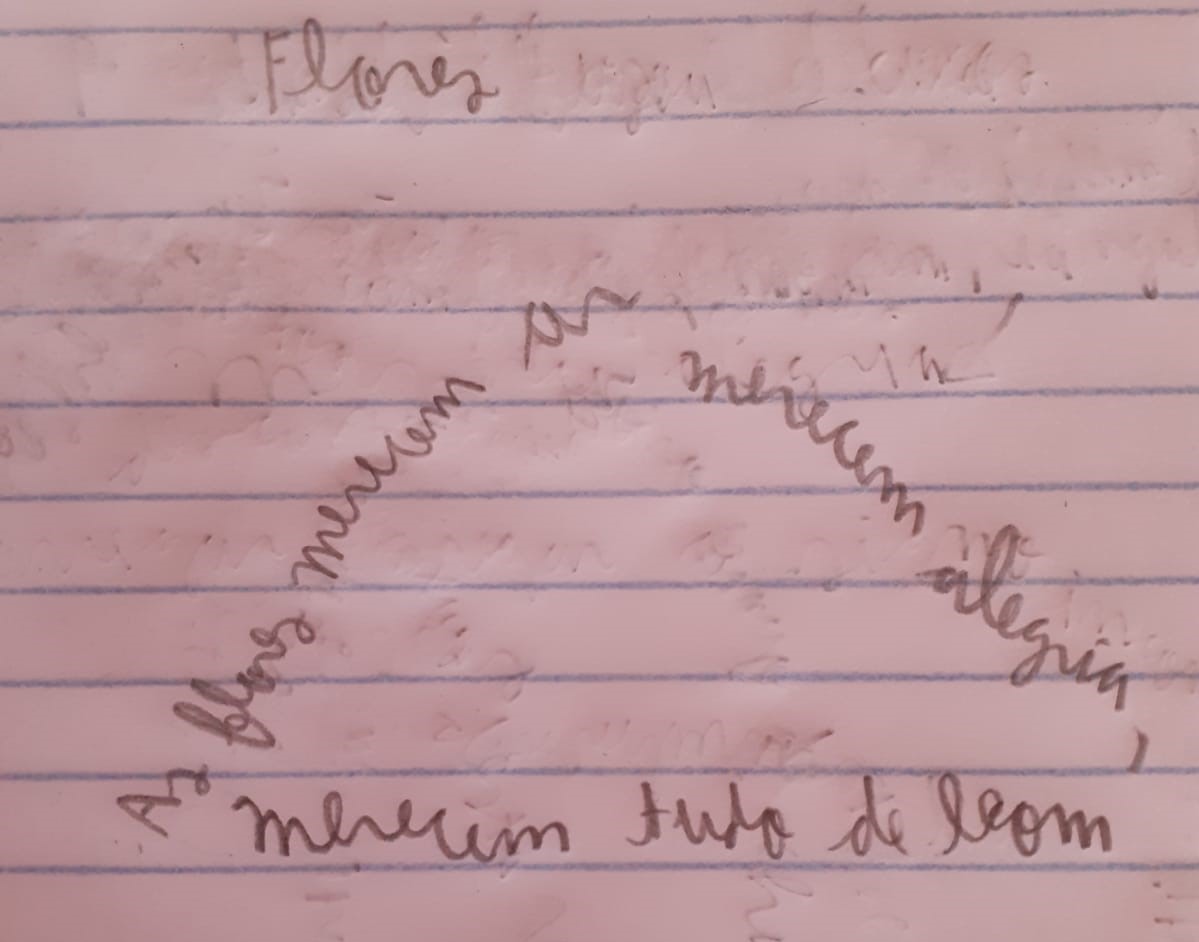 Flores
As flores merecem ar
merecem alegria,
merecem tudo de bom